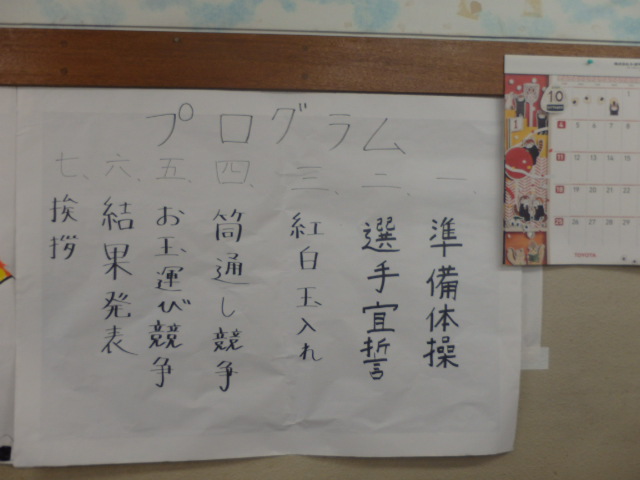 プログラム
一、準備体操
二、選手宣誓
三、紅白玉入れ
四、筒通し競争
五、お玉運び競争
六、結果発表
七、挨拶
10
1
4 5 6 7 8
11 12 13 14 15
18 19 20 21 22
25 26 27 28 29
TOYOTA